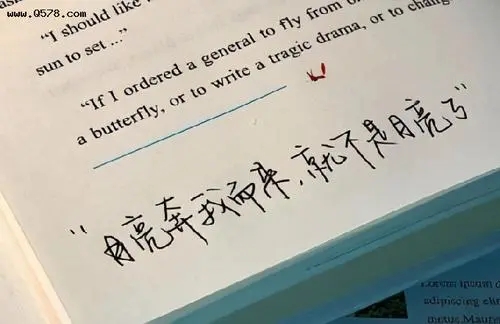 www.Q578.com
“I should like
sun to set ...”
“If I ordered a general to fly from
a butterfly, or to write a tragic drama, or to change
“月亮奔我而来，就不是月亮了”
Lorem ipsum d
adipiscing elit
metus Mauri